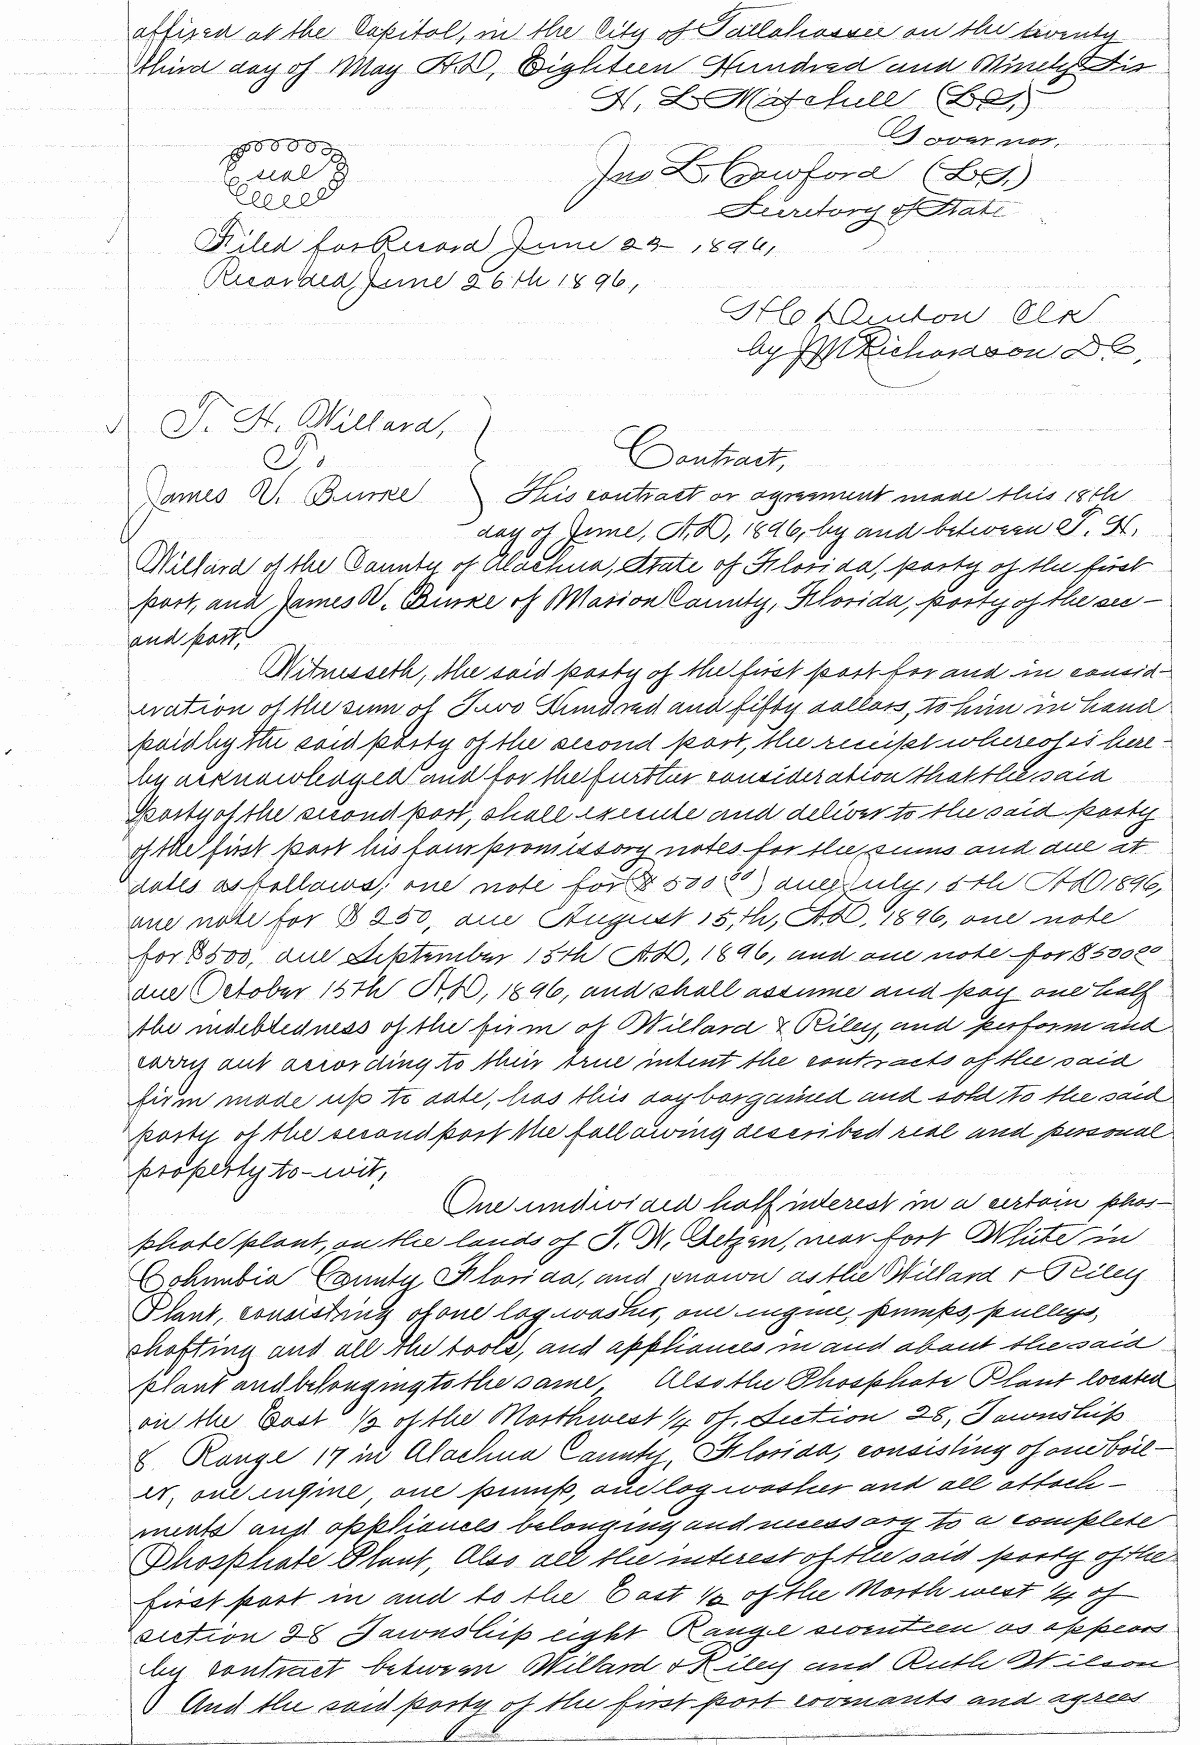 affixed at the Capitol, in the City of Tallahassee on the twenty
third day of May A.D, Eighteen Hundred and Ninety Six
H. L. Mitchell (L.S.)
Governor,
seal
Jno L. Crawford (L.S.)
Secretory of State
Filed for Record June 24 1896,
Recorded June 26th 1896,
H C Denton Clk
by JM Richardson D C,
T. H. Willard,
To
James V. Burke
Contract,
This contract or agreement made this 18th
day of June, A.D, 1896, by and between T. H.
Willard of the County of Alachua, State of Florida, party of the first
part, and James V. Burke of Marion County, Florida, party of the sec-
ond part,
Witnesseth, the said party of the first part for and in consid-
eration of the sum of Two Hundred and fifty dollars, to him in hand
paid by the said party of the second part, the receipt whereof is here-
by acknowledged and for the further consideration that the said
party of the second part, shall execute and deliver to the said party
of the first part his four promissory notes for the sums and due at
dates as follows; one note for $500 00) due July, 15th AD 1896,
one note for $250, due August 15,th, A.D. 1896, one note
for $500, due September 15th A.D, 1896, and one note for $500 00
due October 15th A.D, 1896, and shall assume and pay one half
the indebtedness of the firm of Willard & Riley, and perform and
carry out according to their true intent the contracts of the said
firm made up to date, has this day bargained and sold to the said
party of the second part the following described real and personal
property to-wit,
One undivided half interest in a certain phos-
phate plant, on the lands of T. W. Getzen, near fort White in
Columbia County Florida, and known as the Willard & Riley
Plant, consisting of one log washer, one engine, pumps, pulleys,
shafting and all the tools, and appliances in and about the said
plant and belonging to the same, Also the Phosphate Plant located
on the East 1/2 of the Northwest 1/4 of, Section 28, Township
8 Range 17 in Alachua County, Florida, consisting of one boil-
er, one engine, one pump, one log washer and all attach-
ments and appliances belonging and necessary to a complete
Phosphate Plant, Also all the interest of the said party of the
first part in and to the East 1/2 of the North west 1/4 of
section 28 Township eight Range seventeen as appears
by contract between Willard & Riley and Ruth Wilson
And the said party of the first part covenants and agrees